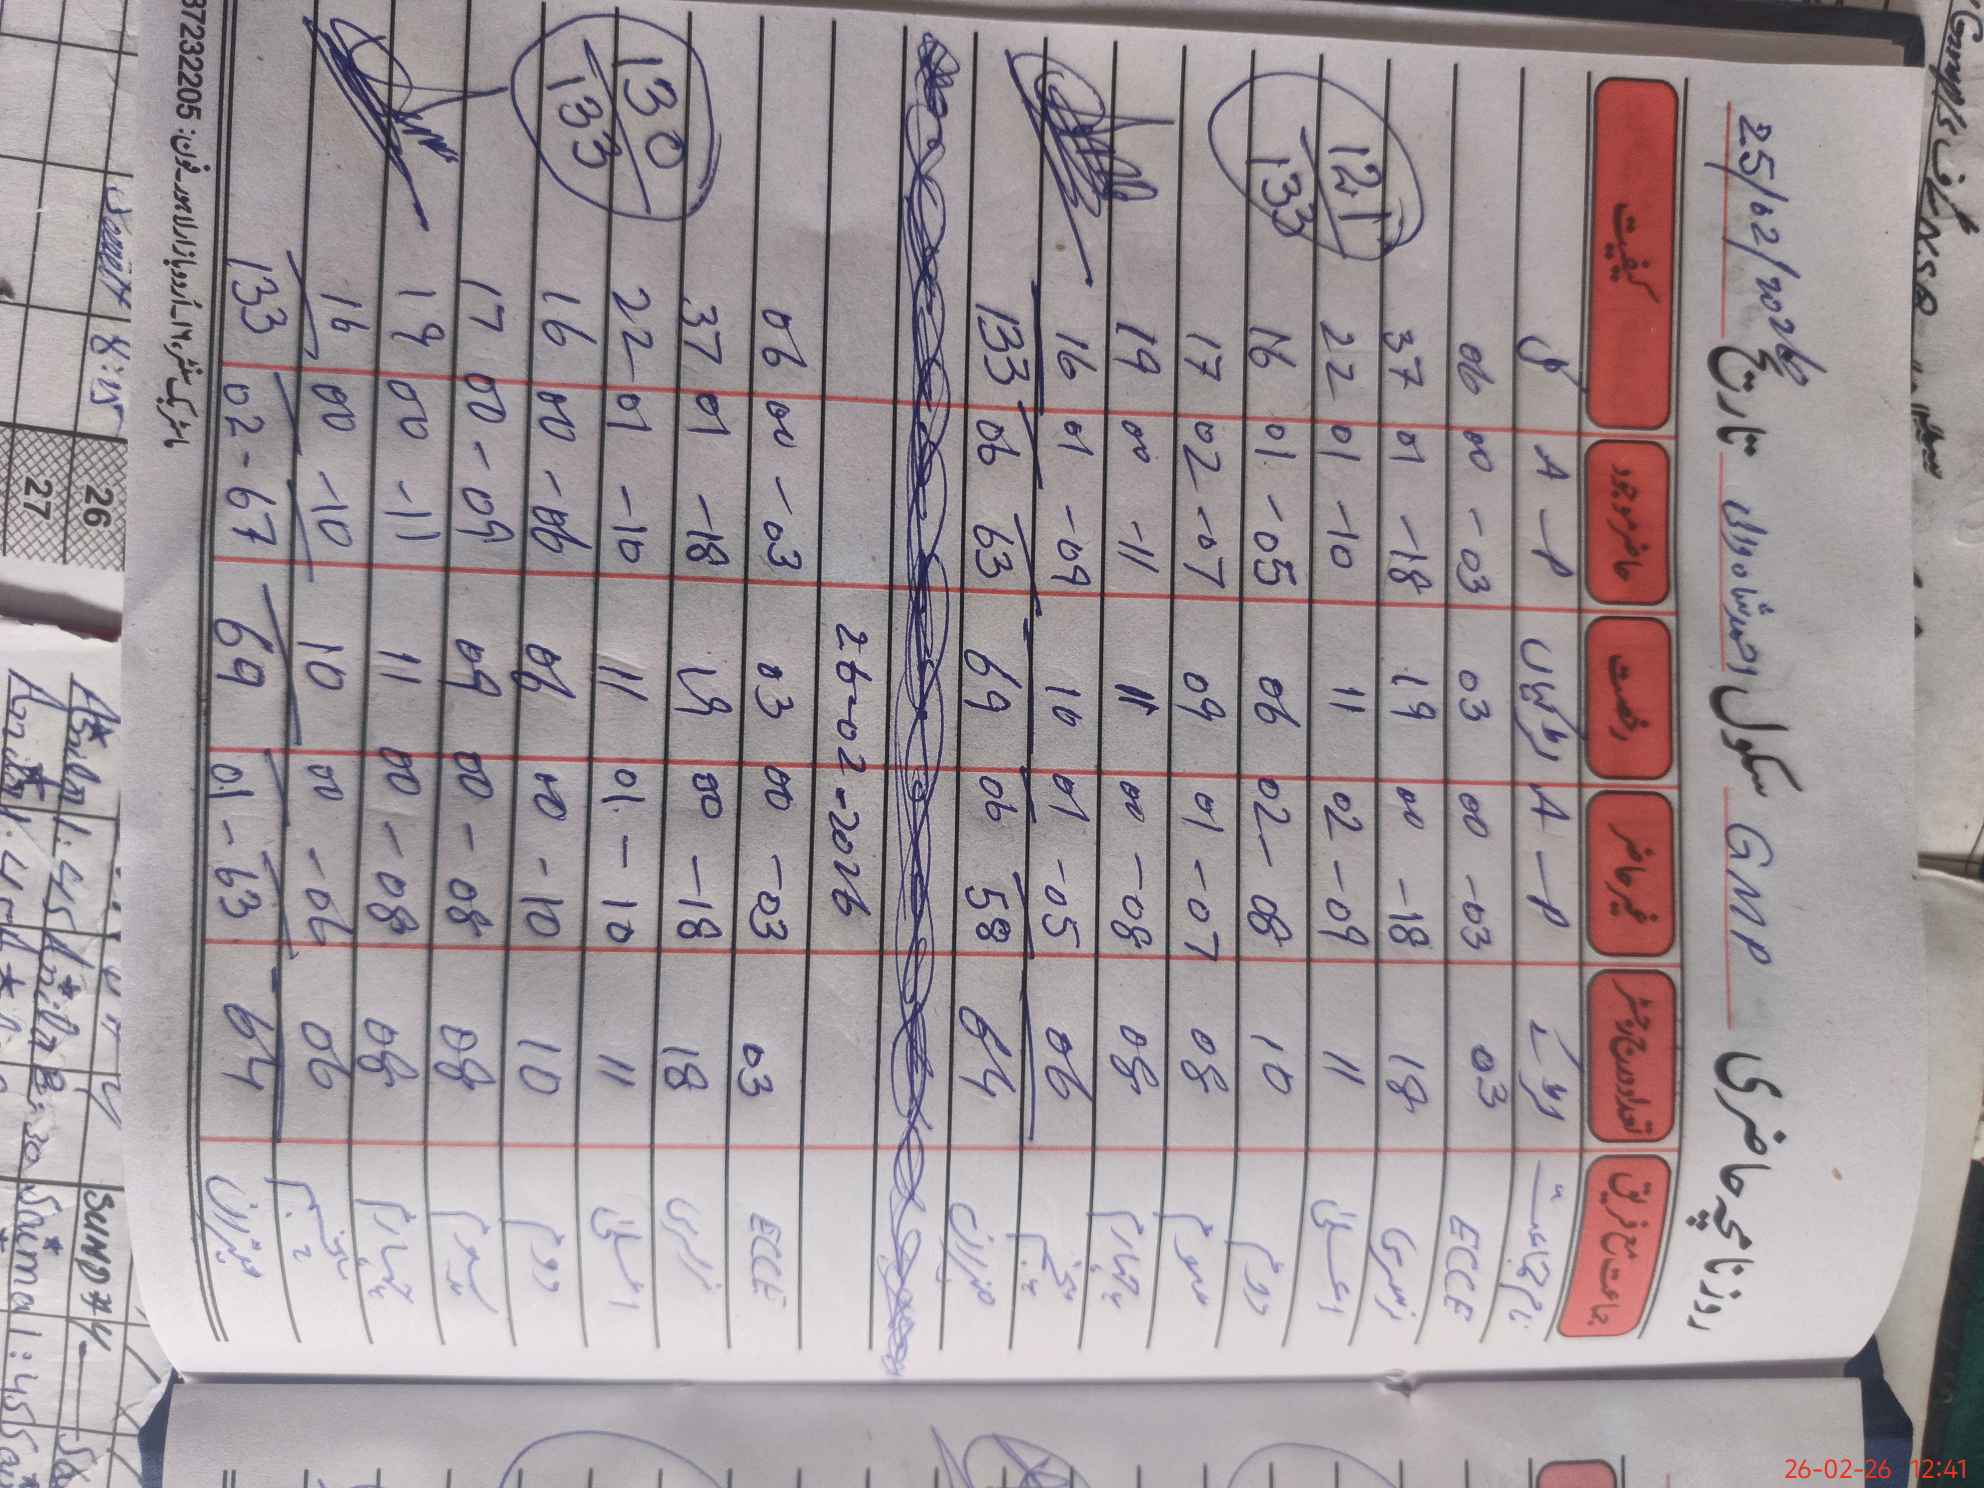 روزنامچہ حاضری سکول GMP احمد شاہ وال تاریخ 25/02/2026
جماعت مع فریق تعداد مندرج رجسٹر غیر حاضر رخصت حاضر موجود کیفیت
نام جماعت لڑکے A - P لڑکیاں A - P کل
ECCE 03 00 - 03 03 00 - 03 06
نرسری 18 00 - 18 19 01 - 18 37
اعلیٰ 11 02 - 09 11 01 - 10 22
دوم 10 02 - 08 06 01 - 05 16
سوم 08 01 - 07 09 02 - 07 17
چہارم 08 00 - 08 11 00 - 11 19
پنجم 06 01 - 05 10 01 - 09 16
میزان 64 06 58 69 06 63 133
121
133
26-02-2026
ECCE 03 00 - 03 03 00 - 03 06
نرسری 18 00 - 18 19 01 - 18 37
اعلیٰ 11 01 - 10 11 01 - 10 22
دوم 10 00 - 10 06 00 - 06 16
سوم 08 00 - 08 09 00 - 09 17
چہارم 08 00 - 08 11 00 - 11 19
پنجم 06 00 - 06 10 00 - 10 16
میزان 64 01 - 63 69 02 - 67 133
130
133
اردو بازار لاہور فون: 37232205
8:15
26
27
SUND
26-02-26 12:41